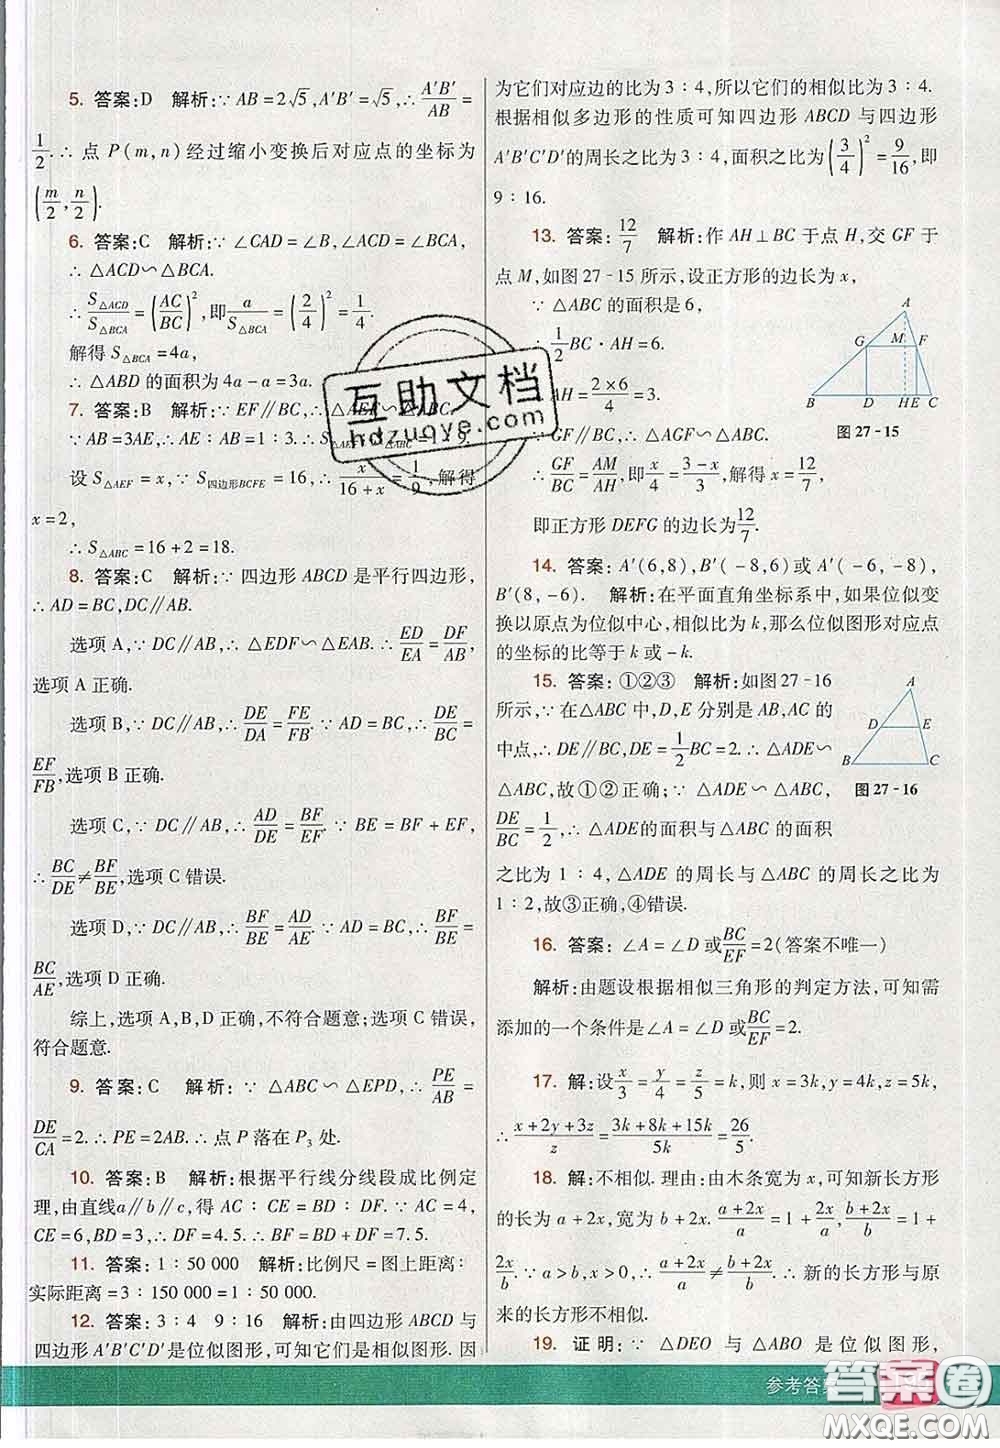 5. 答案:D 解析:∵ AB=2√5,A′B′=√5,∴ A′B′/AB =
1/2.∴ 点 P(m,n)经过缩小变换后对应点的坐标为
(m/2,n/2).
6. 答案:C 解析:∵ ∠CAD=∠B,∠ACD=∠BCA,
∴ △ACD∽△BCA.
∴ S△ACD/S△BCA=(AC/BC)²,即 a/S△BCA=(2/4)²=1/4.
解得 S△BCA=4a,
∴ △ABD 的面积为 4a-a=3a.
7. 答案:B 解析:∵ EF∥BC,∴ △AEF∽△ABC.
∵ AB=3AE,∴ AE∶AB=1∶3.∴ S△AEF∶S△ABC=1∶9.
设 S△AEF=x,∵ S四边形BCFE=16,∴ x/(16+x)=1/9,解得
x=2,
∴ S△ABC=16+2=18.
8. 答案:C 解析:∵ 四边形 ABCD 是平行四边形,
∴ AD=BC,DC∥AB.
选项 A,∵ DC∥AB,∴ △EDF∽△EAB.∴ ED/EA=DF/AB,
选项 A 正确.
选项 B,∵ DC∥AB,∴ DE/DA=FE/FB.∵ AD=BC,∴ DE/BC=
EF/FB,选项 B 正确.
选项 C,∵ DC∥AB,∴ AD/DE=BF/EF.∵ BE=BF+EF,
∴ BC/DE≠BF/BE,选项 C 错误.
选项 D,∵ DC∥AB,∴ BF/BE=AD/AE.∵ AD=BC,∴ BF/BE=
BC/AE,选项 D 正确.
综上,选项 A,B,D 正确,不符合题意;选项 C 错误,
符合题意.
9. 答案:C 解析:∵ △ABC∽△EPD,∴ PE/AB=
DE/CA=2.∴ PE=2AB.∴ 点 P 落在 P₃ 处.
10. 答案:B 解析:根据平行线分线段成比例定
理,由直线a∥b∥c,得 AC∶CE=BD∶DF.∵ AC=4,
CE=6,BD=3,∴ DF=4.5.∴ BF=BD+DF=7.5.
11. 答案:1∶50 000 解析:比例尺=图上距离∶
实际距离=3∶150 000=1∶50 000.
12. 答案:3∶4 9∶16 解析:由四边形 ABCD 与
四边形 A′B′C′D′是位似图形,可知它们是相似图形.因
为它们对应边的比为 3∶4,所以它们的相似比为 3∶4.
根据相似多边形的性质可知四边形 ABCD 与四边形
A′B′C′D′的周长之比为 3∶4,面积之比为(3/4)²=9/16,即
9∶16.
13. 答案:12/7 解析:作 AH⊥BC 于点 H,交 GF 于
点 M,如图 27-15 所示,设正方形的边长为 x,
∵ △ABC 的面积是 6,
∴ 1/2BC·AH=6.
AH=2×6/4=3.
∵ GF∥BC,∴ △AGF∽△ABC.
∴ GF/BC=AM/AH,即 x/4=(3-x)/3,解得 x=12/7,
即正方形 DEFG 的边长为12/7.
A
G M F
B D H E C
图 27-15
14. 答案:A′(6,8),B′(-8,6)或 A′(-6,-8),
B′(8,-6). 解析:在平面直角坐标系中,如果位似变
换以原点为位似中心,相似比为 k,那么位似图形对应点
的坐标的比等于 k 或-k.
15. 答案:①②③ 解析:如图 27-16
所示,∵ 在△ABC 中,D,E 分别是 AB,AC 的
中点,∴ DE∥BC,DE=1/2BC=2.∴ △ADE∽
△ABC,故①②正确;∵ △ADE∽△ABC,
DE/BC=1/2,∴ △ADE的面积与△ABC 的面积
之比为 1∶4,△ADE 的周长与△ABC 的周长之比为
1∶2,故③正确,④错误.
A
D E
B C
图 27-16
16. 答案:∠A=∠D 或BC/EF=2(答案不唯一)
解析:由题设根据相似三角形的判定方法,可知需
添加的一个条件是∠A=∠D 或BC/EF=2.
17. 解:设x/3=y/4=z/5=k,则 x=3k,y=4k,z=5k,
∴ (x+2y+3z)/z=(3k+8k+15k)/5k=26/5.
18. 解:不相似.理由:由木条宽为 x,可知新长方形
的长为 a+2x,宽为 b+2x.(a+2x)/a=1+2x/a,(b+2x)/b=1+
2x/b.∵ a>b,x>0,∴ (a+2x)/a≠(b+2x)/b.∴ 新的长方形与原
来的长方形不相似.
19. 证明:∵ △DEO 与△ABO 是位似图形,
参考答案
互助文档
hdzuoye.com
答案卷
MXQE.COM